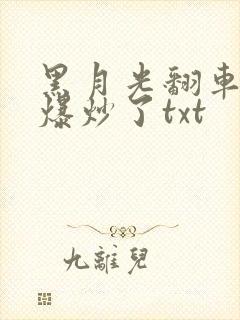 黑月光翻車
爆炒了txt
九離兒